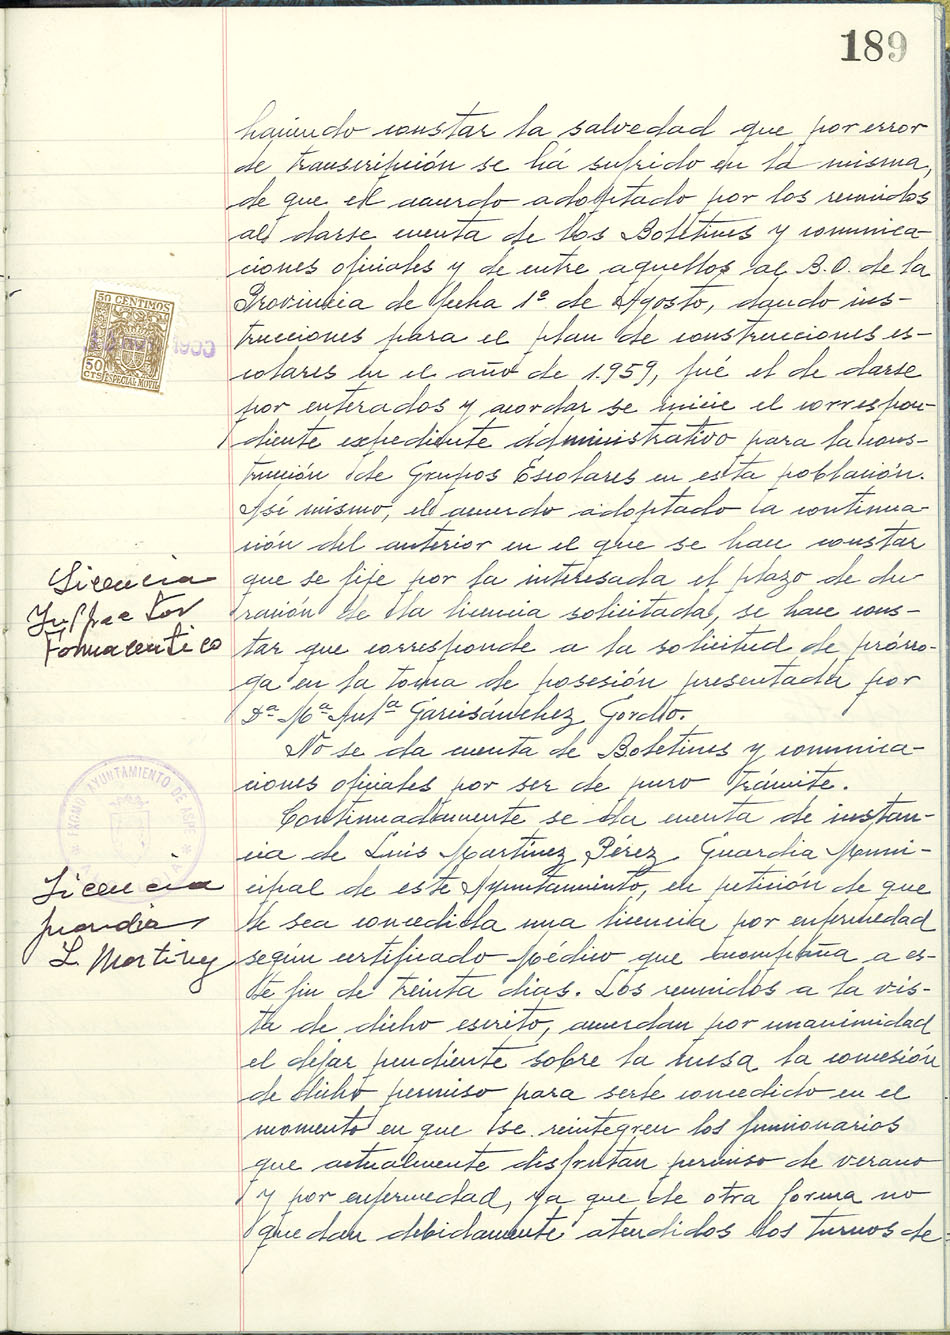 189
haciendo constar la salvedad que por error
de transcripción se há sufrido en la misma,
de que el acuerdo adoptado por los reunidos
al darse cuenta de los Boletines y comunica-
ciones oficiales y de entre aquellos al B.O. de la
Provincia de fecha 1º de Agosto, dando ins-
trucciones para el plan de construcciones es-
colares en el año de 1.959, fué el de darse
por enterados y acordar se inicie el correspon-
diente expediente administrativo para la cons-
trucción de Grupos Escolares en esta población.
Así mismo, el acuerdo adoptado a continua-
ción del anterior en el que se hace constar
que se fije por la interesada el plazo de du-
ración de la licencia solicitada, se hace cons-
tar que corresponde a la solicitud de prórro-
ga en la toma de posesión presentada por
Dª Mª Antª Garcisánchez Gordo.
No se da cuenta de Boletines y comunica-
ciones oficiales por ser de puro trámite.
Continuadamente se da cuenta de instan-
cia de Luis Martínez Pérez Guardia Muni-
cipal de este Ayuntamiento, en petición de que
le sea concedida una licencia por enfermedad
según certificado Médico que acompaña a es-
te fin de treinta dias. Los reunidos a la vis-
ta de dicho escrito, acuerdan por unanimidad
el dejar pendiente sobre la mesa la concesión
de dicho permiso para serle concedido en el
momento en que se reintegren los funcionarios
que actualmente disfrutan permiso de verano
y por enfermedad, ya que de otra forma no
quedan debidamente atendidos los turnos de
50 CENTIMOS
50
CTS ESPECIAL MOVIL
Licencia
Inspector
Farmaceutico
EXCMO AYUNTAMIENTO DE ASPE
Licencia
guardia
L. Martinez